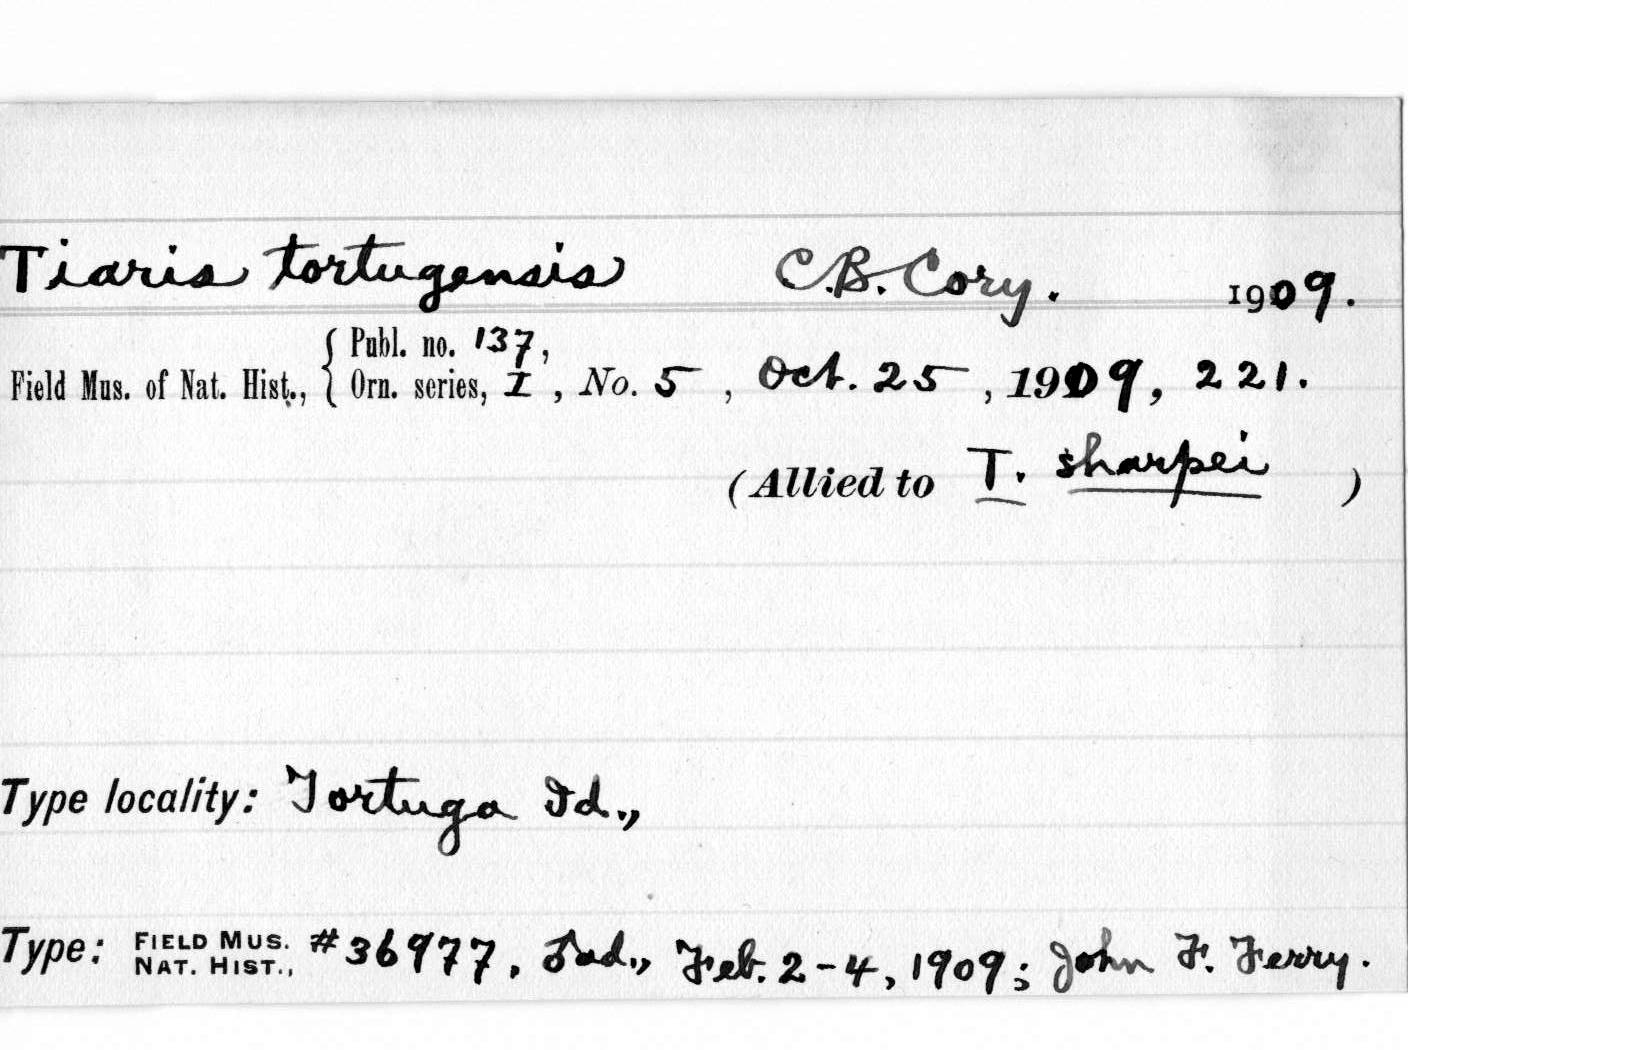 Tiaris tortugensis C.B. Cory. 1909.
Publ. no. 137,
Field Mus. of Nat. Hist., Orn. series, I, No. 5, Oct. 25, 1909, 221.
(Allied to T. sharpei )
Type locality: Tortuga Id.,
Type: FIELD MUS. NAT. HIST., #36977, ad., Feb. 2-4, 1909; John F. Ferry.